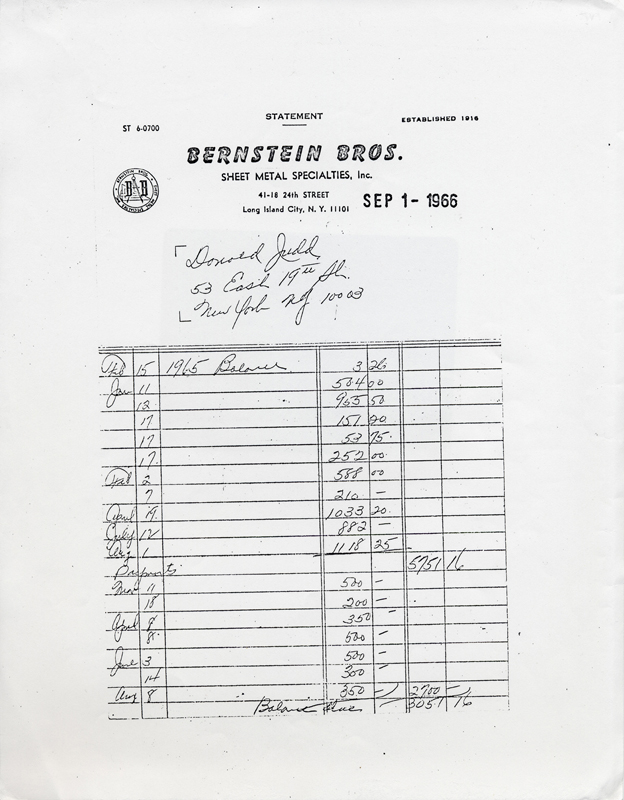 STATEMENT
ESTABLISHED 1916
ST 6-0700
BERNSTEIN BROS.
SHEET METAL SPECIALTIES, Inc.
41-18 24th STREET
Long Island City, N. Y. 11101
SEP 1- 1966
Donald Judd
53 East 19th St.
New York NY 10003
Feb 15 1965 Balance 3 26
Jan 11 504 00
12 955 50
17 151 20
17 53 75
17 252 00
Feb 2 588 00
7 210 —
April 19 1033 20
July 12 882 —
Aug 1 1118 25
5751 16
Payments
Mar 11 500 —
18 200 —
April 8 350 —
8 500 —
June 3 500 —
14 300 —
Aug 8 350 — 2700 —
Balance Due 3051 16